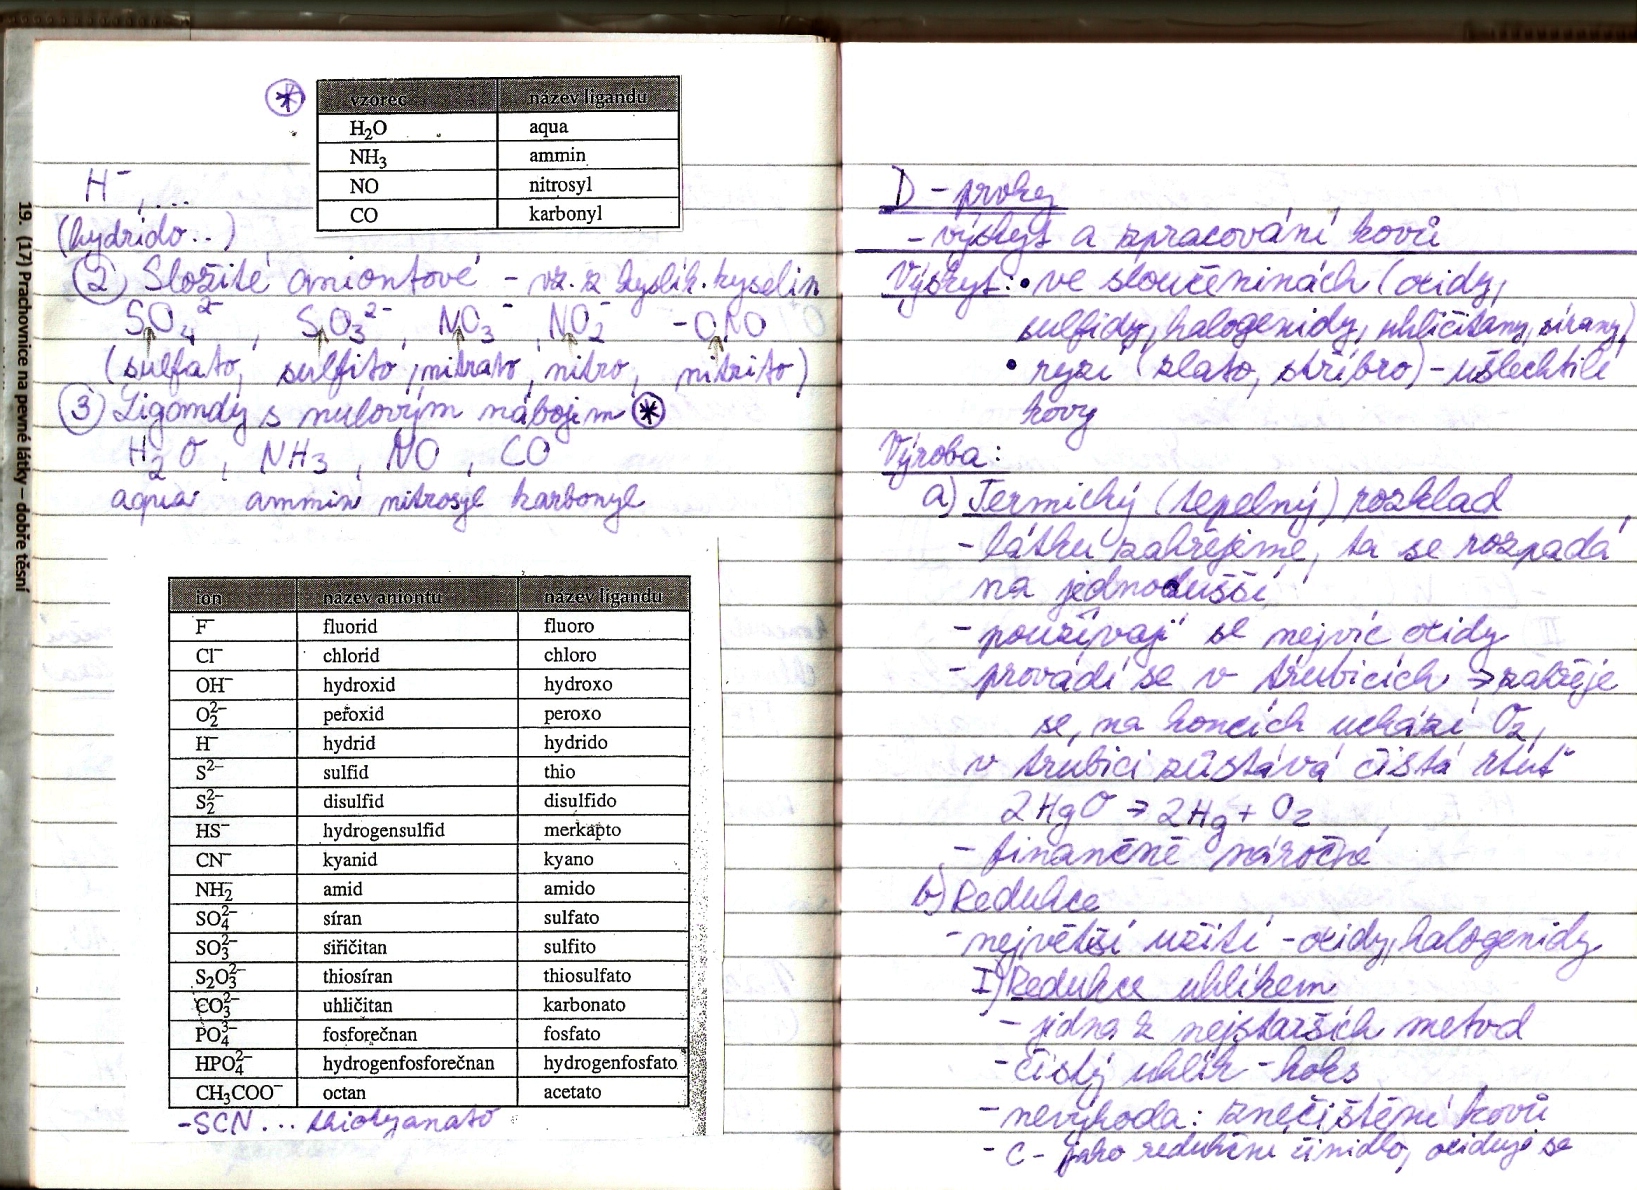 19. (17) Prachovnice na pevné látky – dobře těsní
vzorec název ligandu
H₂O aqua
NH₃ ammin
NO nitrosyl
CO karbonyl
H⁻, ...
(hydrido..)
② Složité aniontové - vz. z kyslík. kyselin
SO₄²⁻, SO₃²⁻, NO₃⁻, NO₂⁻ -ONO
(sulfato, sulfito, nitrato, nitro, nitrito)
③ Ligandy s nulovým nábojem *
H₂O, NH₃, NO, CO
aqua ammin nitrosyl karbonyl
ion název aniontu název ligandu
F⁻ fluorid fluoro
Cl⁻ chlorid chloro
OH⁻ hydroxid hydroxo
O₂²⁻ peroxid peroxo
H⁻ hydrid hydrido
S²⁻ sulfid thio
S₂²⁻ disulfid disulfido
HS⁻ hydrogensulfid merkapto
CN⁻ kyanid kyano
NH₂⁻ amid amido
SO₄²⁻ síran sulfato
SO₃²⁻ siřičitan sulfito
S₂O₃²⁻ thiosíran thiosulfato
CO₃²⁻ uhličitan karbonato
PO₄³⁻ fosforečnan fosfato
HPO₄²⁻ hydrogenfosforečnan hydrogenfosfato
CH₃COO⁻ octan acetato
-SCN... thiokyanato
D - prvky
- výskyt a zpracování kovů
Výskyt: • ve sloučeninách (oxidy,
sulfidy, halogenidy, uhličitany, sírany)
• ryzí (zlato, stříbro) - ušlechtilé
kovy
Výroba:
a) Termický (tepelný) rozklad
- látku zahřejeme, ta se rozpadá
na jednodušší
- používají se nejvíc oxidy
- provádí se v trubicích → zahřeje
se, na koncích uchází O₂,
v trubici zůstává čistá rtuť
2HgO → 2Hg + O₂
- finančně náročné
b) Redukce
- největší užití - oxidy, halogenidy
I) Redukce uhlíkem
- jedna z nejstarších metod
- čistý uhlík - koks
- nevýhoda: znečištění kovů
- C - jako redukční činidlo, oxiduje se